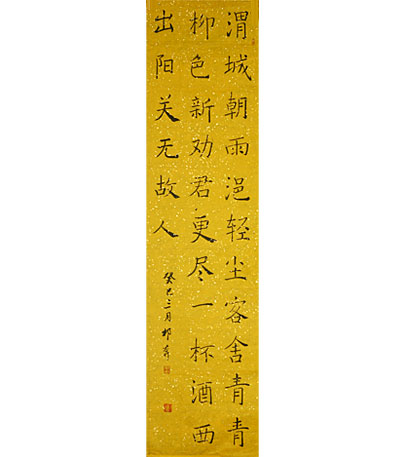 渭城朝雨浥轻尘客舍青青
柳色新劝君更尽一杯酒西
出阳关无故人
癸巳三月